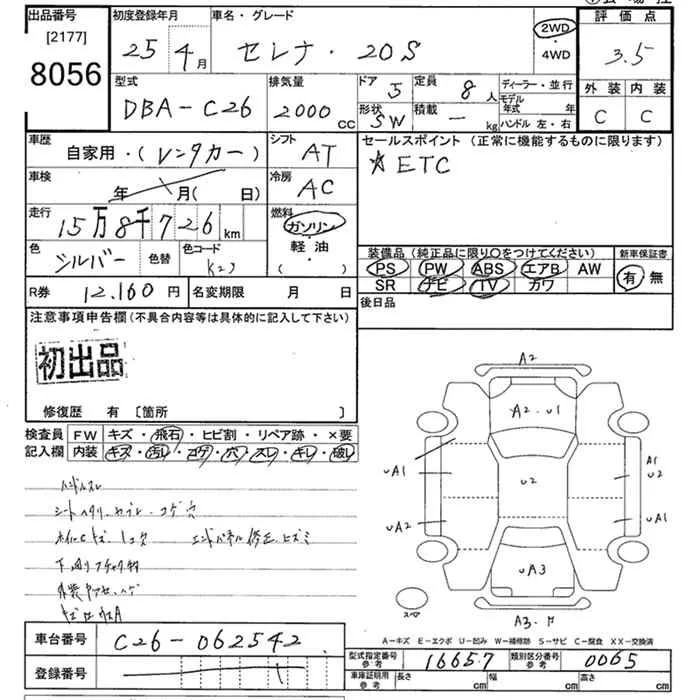 出品番号 初度登録年月 車名・グレード 評価点
[2177]
8056
25 4月 セレナ・20S 2WD・4WD 3.5
型式 排気量 ドア 5 定員 8人 ディーラー・並行 外装 内装
DBA-C26 2000cc 形状 SW 積載 - kg モデル年式 年 ハンドル 左・右 C C
車歴 シフト セールスポイント (正常に機能するものに限ります)
自家用・(レンタカー) AT ☆ETC
車検 年 月( 日) 冷房 AC
走行 15万8千726km 燃料 ガソリン・軽油・( )
色 シルバー 色替 色コード K23
装備品(純正品に限り○をつけてください) 新車保証書
PS PW ABS エアB AW 有・無
SR ナビ TV カワ
R券 12,160円 名変期限 月 日 後日品
注意事項申告欄(不具合内容等は具体的に記入して下さい)
初出品
修復歴 有〔箇所 〕
検査員 FW キズ・飛石・ヒビ割・リペア跡・×要
記入欄 内装 キズ・汚レ・コゲ・穴・スレ・キレ・破レ
ハンドルスレ
エンドパネル修正ヒズミ
A2
A2・U1
UA1 U2 A1 U2
UA2 UA1
UA3
スペア
A3・
A-キズ E-エクボ U-凹み W-補修跡 S-サビ C-腐食 XX-交換済
車台番号 C26-062542
登録番号
型式指定番号 参考 16657 類別区分番号 参考 0065
車庫証明用 参考 長さ cm 幅 cm 高さ cm